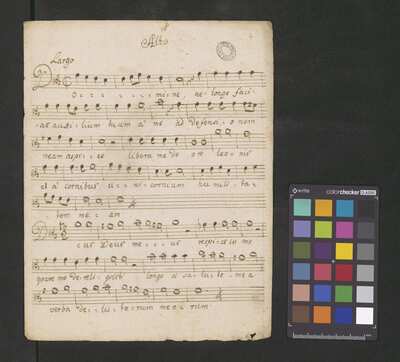 Alto
Largo
Do - - - - mi: ne, ne longe faci-
as auxilium tuum a me ad defensio nem
meam aspi - ce libera me de ore leo - nis
et a cornibus u - ni - cornium humili - ta -
tem me - am
Deus Deus me - - us respice in me
quare me de-reli-quisti longe a sa - lu - te me a
verba de - li - cto - rum meo - rum
colorchecker CLASSIC